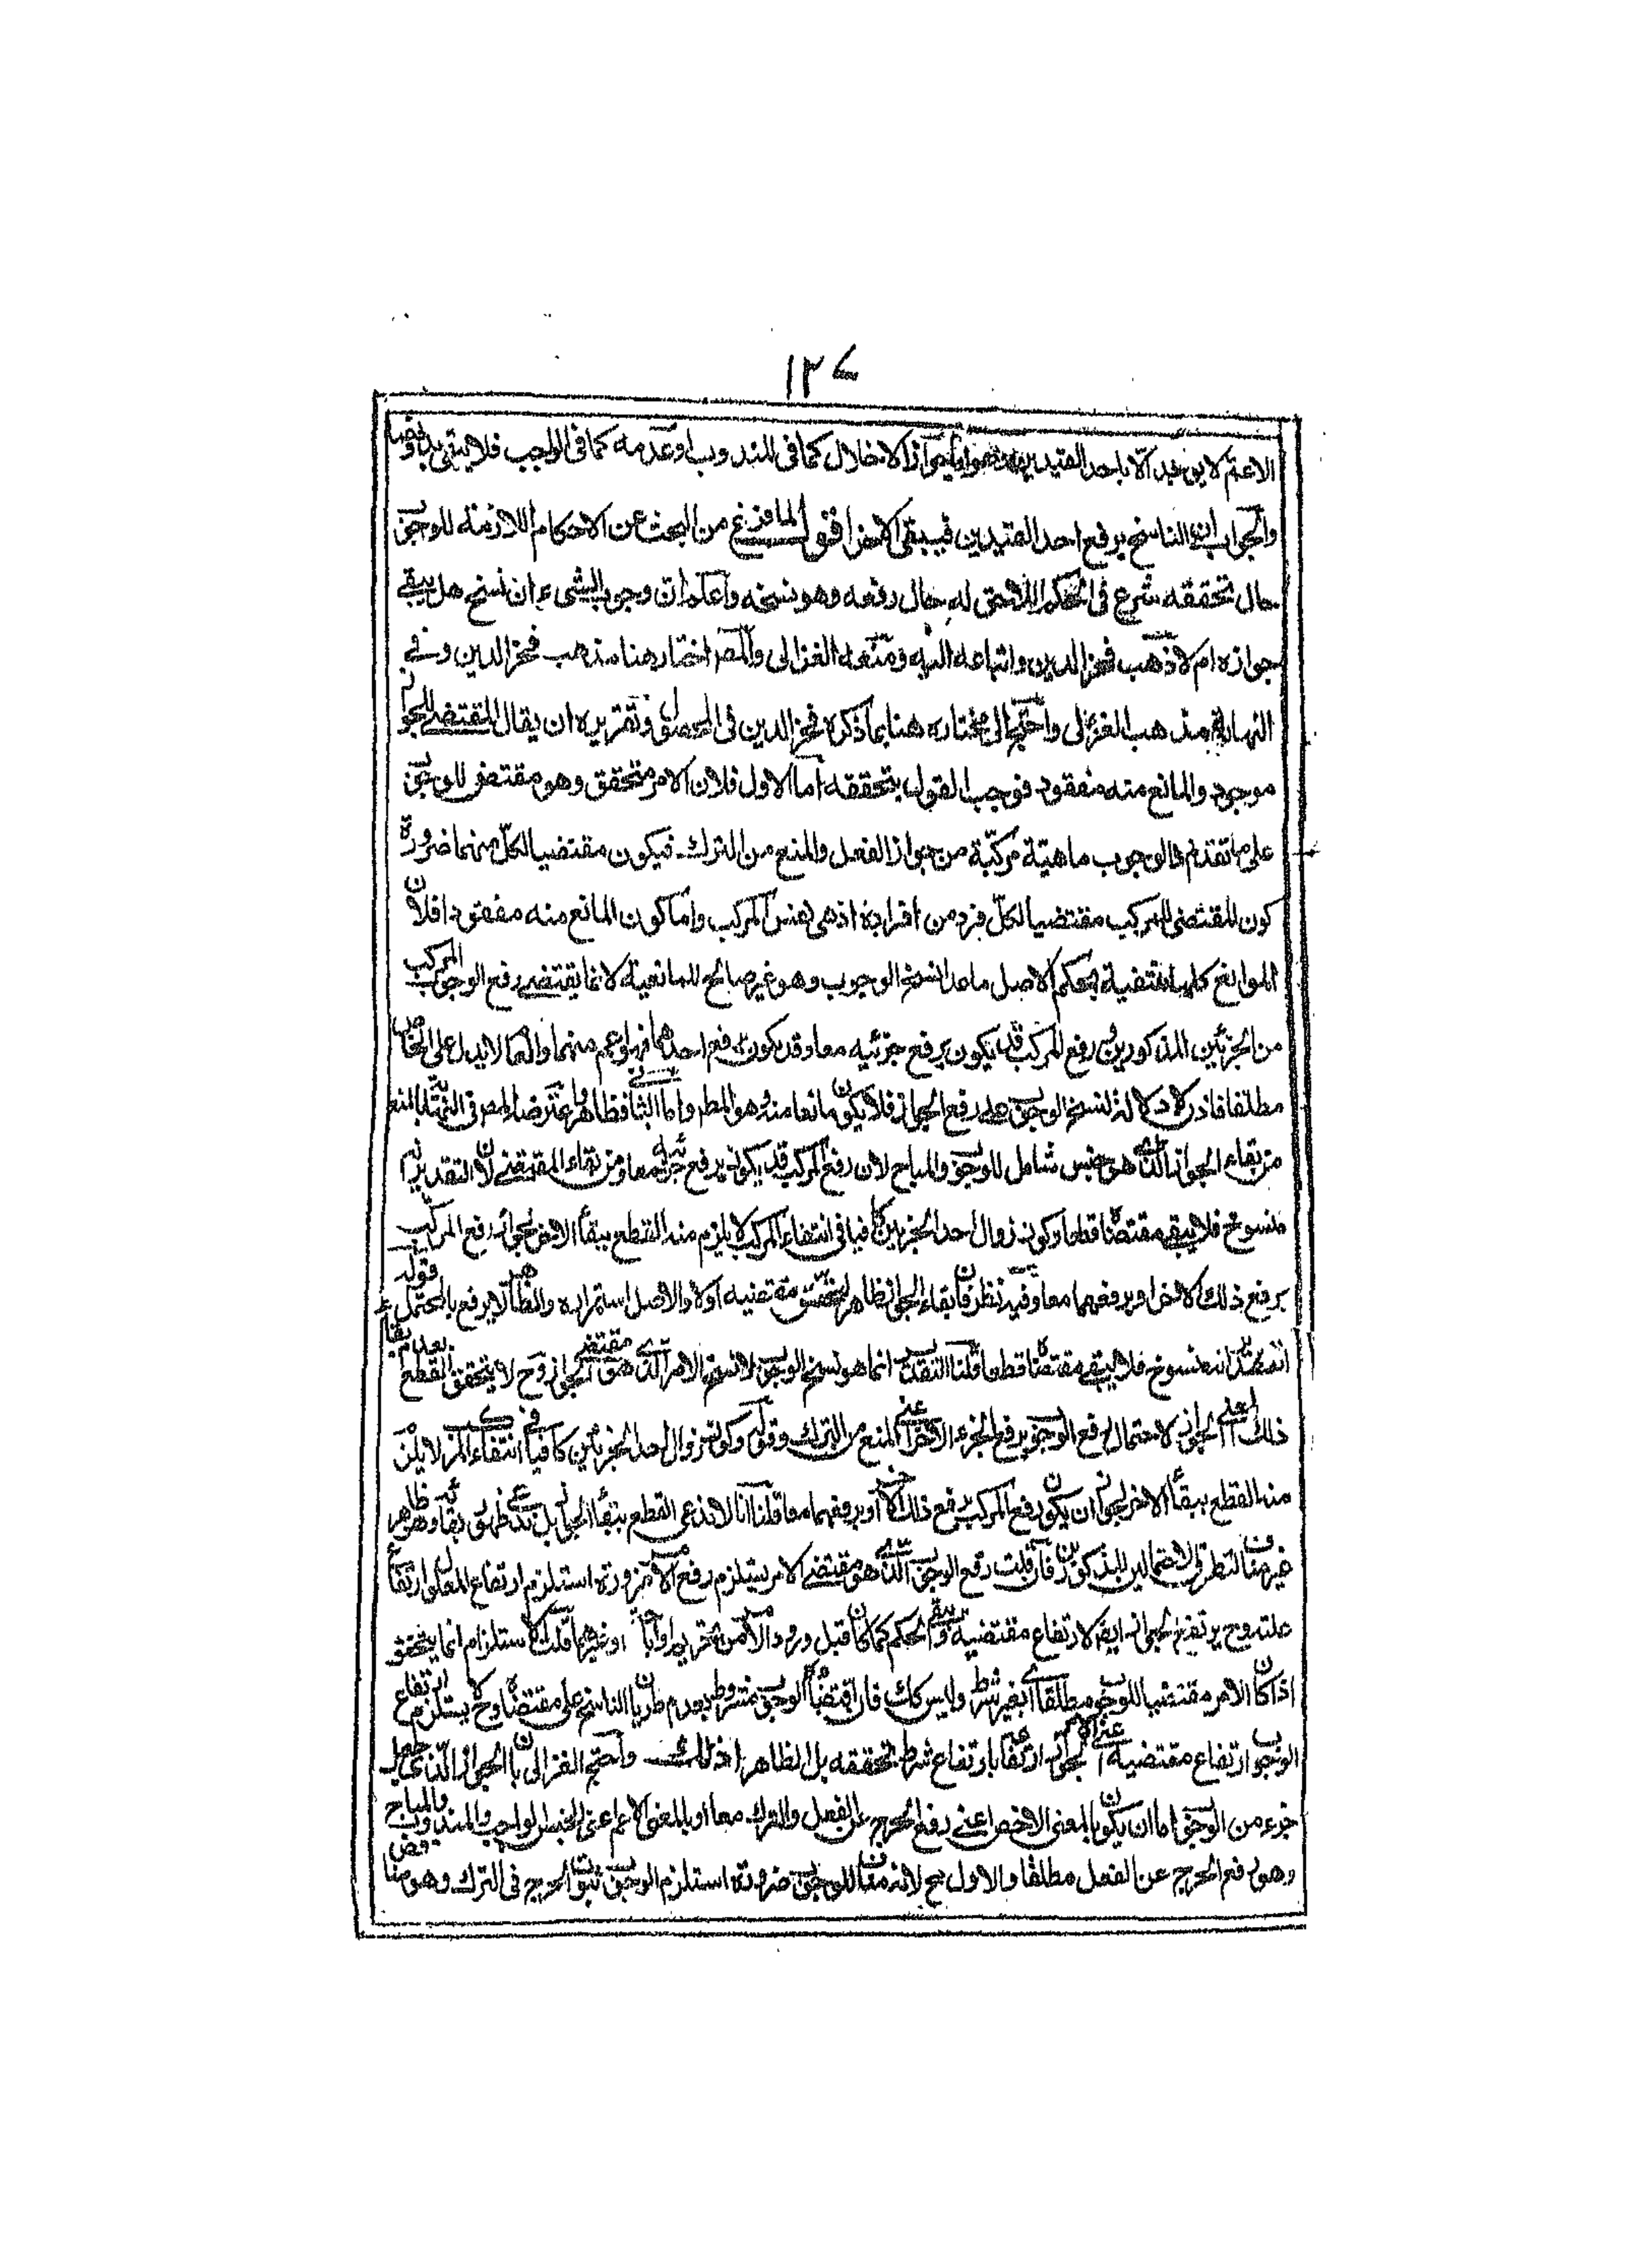 ١٢٧
الاعم لا يوجد الا باحد القيدين جواز الاخلال كما فى المندوب او عدمه كما فى الواجب فلا يبقى بدونهما
والجواب ان الناسخ يرفع احد القيدين فيبقى الاخر اقول لما فرغ من البحث عن الاحكام اللازمة للوجوب
حال تحققه شرع فى الحكم اللاحق له حال رفعه وهو نسخه واعلم ان وجوب الشىء ان نسخ هل يبقى
جوازه ام لا ذهب فخر الدين واتباعه اليه ومنعه الغزالى والمص اختار هنا مذهب فخر الدين وفى
النهاية مذهب الغزالى واحتج على مختاره هنا بما ذكره فخر الدين فى المحصول وتقريره ان يقال المقتضى للجواز
موجود والمانع منه مفقود فوجب القول بتحققه اما الاول فلان الامر متحقق وهو مقتض للوجوب
على ما تقدم والوجوب ماهية مركبة من جواز الفعل والمنع من الترك فيكون مقتضيا لكل منهما ضرورة
كون المقتضى للمركب مقتضيا لكل فرد من افراده اذ هى نفس المركب واما كون المانع منه مفقودا فلان
الموانع كلها منتفية بحكم الاصل ما عدا نسخ الوجوب وهو غير صالح للمانعية لانه انما يقتضى رفع الوجوب المركب
من الجزئين المذكورين ورفع المركب قد يكون برفع جزئيه معا وقد يكون برفع احدهما فهو اعم منهما والعام لا يدل على الخاص
مطلقا فاذن لا دلالة لنسخ الوجوب على رفع الجواز فلا يكون مانعا منه وهو المط واما الثانى فظاهر واعترض المص فى النهاية بالمنع
من بقاء الجواز الذى هو جنس شامل للوجوب والمباح لان رفع المركب قد يكون برفع جزئيه معا ومن بقاء المقتضى لان التقدير انه
منسوخ فلا يبقى مقتضاه قطعا وكون زوال احد الجزئين كافيا فى انتفاء المركب لا يلزم منه القطع ببقاء الاخر لجواز رفع المركب
برفع ذلك الاخر او برفعهما معا وفيه نظر فان بقاء الجواز ظاهر لتحقق مقتضيه اولا والاصل استمراره والظاهر لا يرفع بالمحتمل قوله
التقدير انه منسوخ فلا يبقى مقتضاه قطعا قلنا التقدير انما هو نسخ الوجوب لا نسخ الامر الذى هو مقتضى الجواز وح لا يتحقق القطع بعدم بقاء
ذلك اعنى الجواز لاحتمال رفع الوجوب برفع الجزء الاخر اعنى المنع من الترك وقوله وكون زوال احد الجزئين كافيا فى انتفاء المركب لا يلزم
منه القطع ببقاء الاخر لجواز ان يكون رفع المركب برفع ذلك الاخر او برفعهما معا قلنا انا لا ندعى القطع ببقاء الجواز بل ندعى ظهور بقائه وهو ظاهر
غير مناف لتطرق الاحتمالين المذكورين فان قلت رفع الوجوب الذى هو مقتضى الامر يستلزم رفع الامر ضرورة استلزام ارتفاع المعلول ارتفاع
علته وح يرتفع الجواز ايضا لارتفاع مقتضيه ويبقى الحكم كما كان قبل ورود الامر من تحريم او اباحة او غيرهما قلت الاستلزام انما يتحقق
اذا كان الامر مقتضيا للوجوب مطلقا اى بغير شرط وليس كذلك فان اقتضاء الوجوب مشروط بعدم طريان الناسخ على مقتضاه وح لا يستلزم ارتفاع
الوجوب ارتفاع مقتضيه اعنى الامر لجواز ارتفاعه بارتفاع شرط تحققه بل الظاهر ذلك واحتج الغزالى بان الجواز الذى جعل
جزء من الوجوب اما ان يكون بالمعنى الاخص اعنى رفع الحرج عن الفعل والترك معا او بالمعنى الاعم اعنى الجنس لواجب والمندوب والمباح
وهو رفع الحرج عن الفعل مطلقا والاول مح لانه مناف للوجوب ضرورة استلزام الوجوب ثبوت الحرج فى الترك وهو مناقض